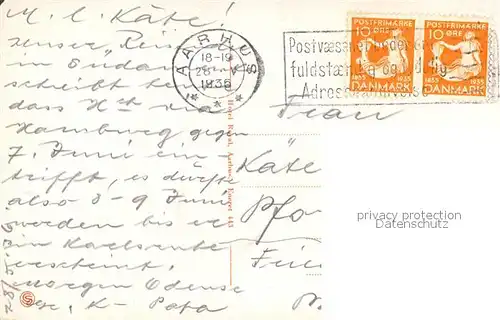 M. l. Käte!
unser "Reise
in Sudan
schreibt
dass Ht. via
Hamburg gegen
7. Juni ein-
trifft, es dürfte
also 8-9 Juni
werden bis er
in Karlsruhe
erscheint.
Morgen Odense
K- Papa
28/5 35
AARHUS
18-19
28 V
1935
Postvæsenet
fuldstændig og tydelig
Adresse
POSTFRIMÆRKE
10 ØRE
1835 1935
DANMARK
POSTFRIMÆRKE
10 ØRE
1835 1935
DANMARK
Hotel Royal, Aarhus. Eneret 443
Frau
Käte
Pfo
privacy protection
Datenschutz